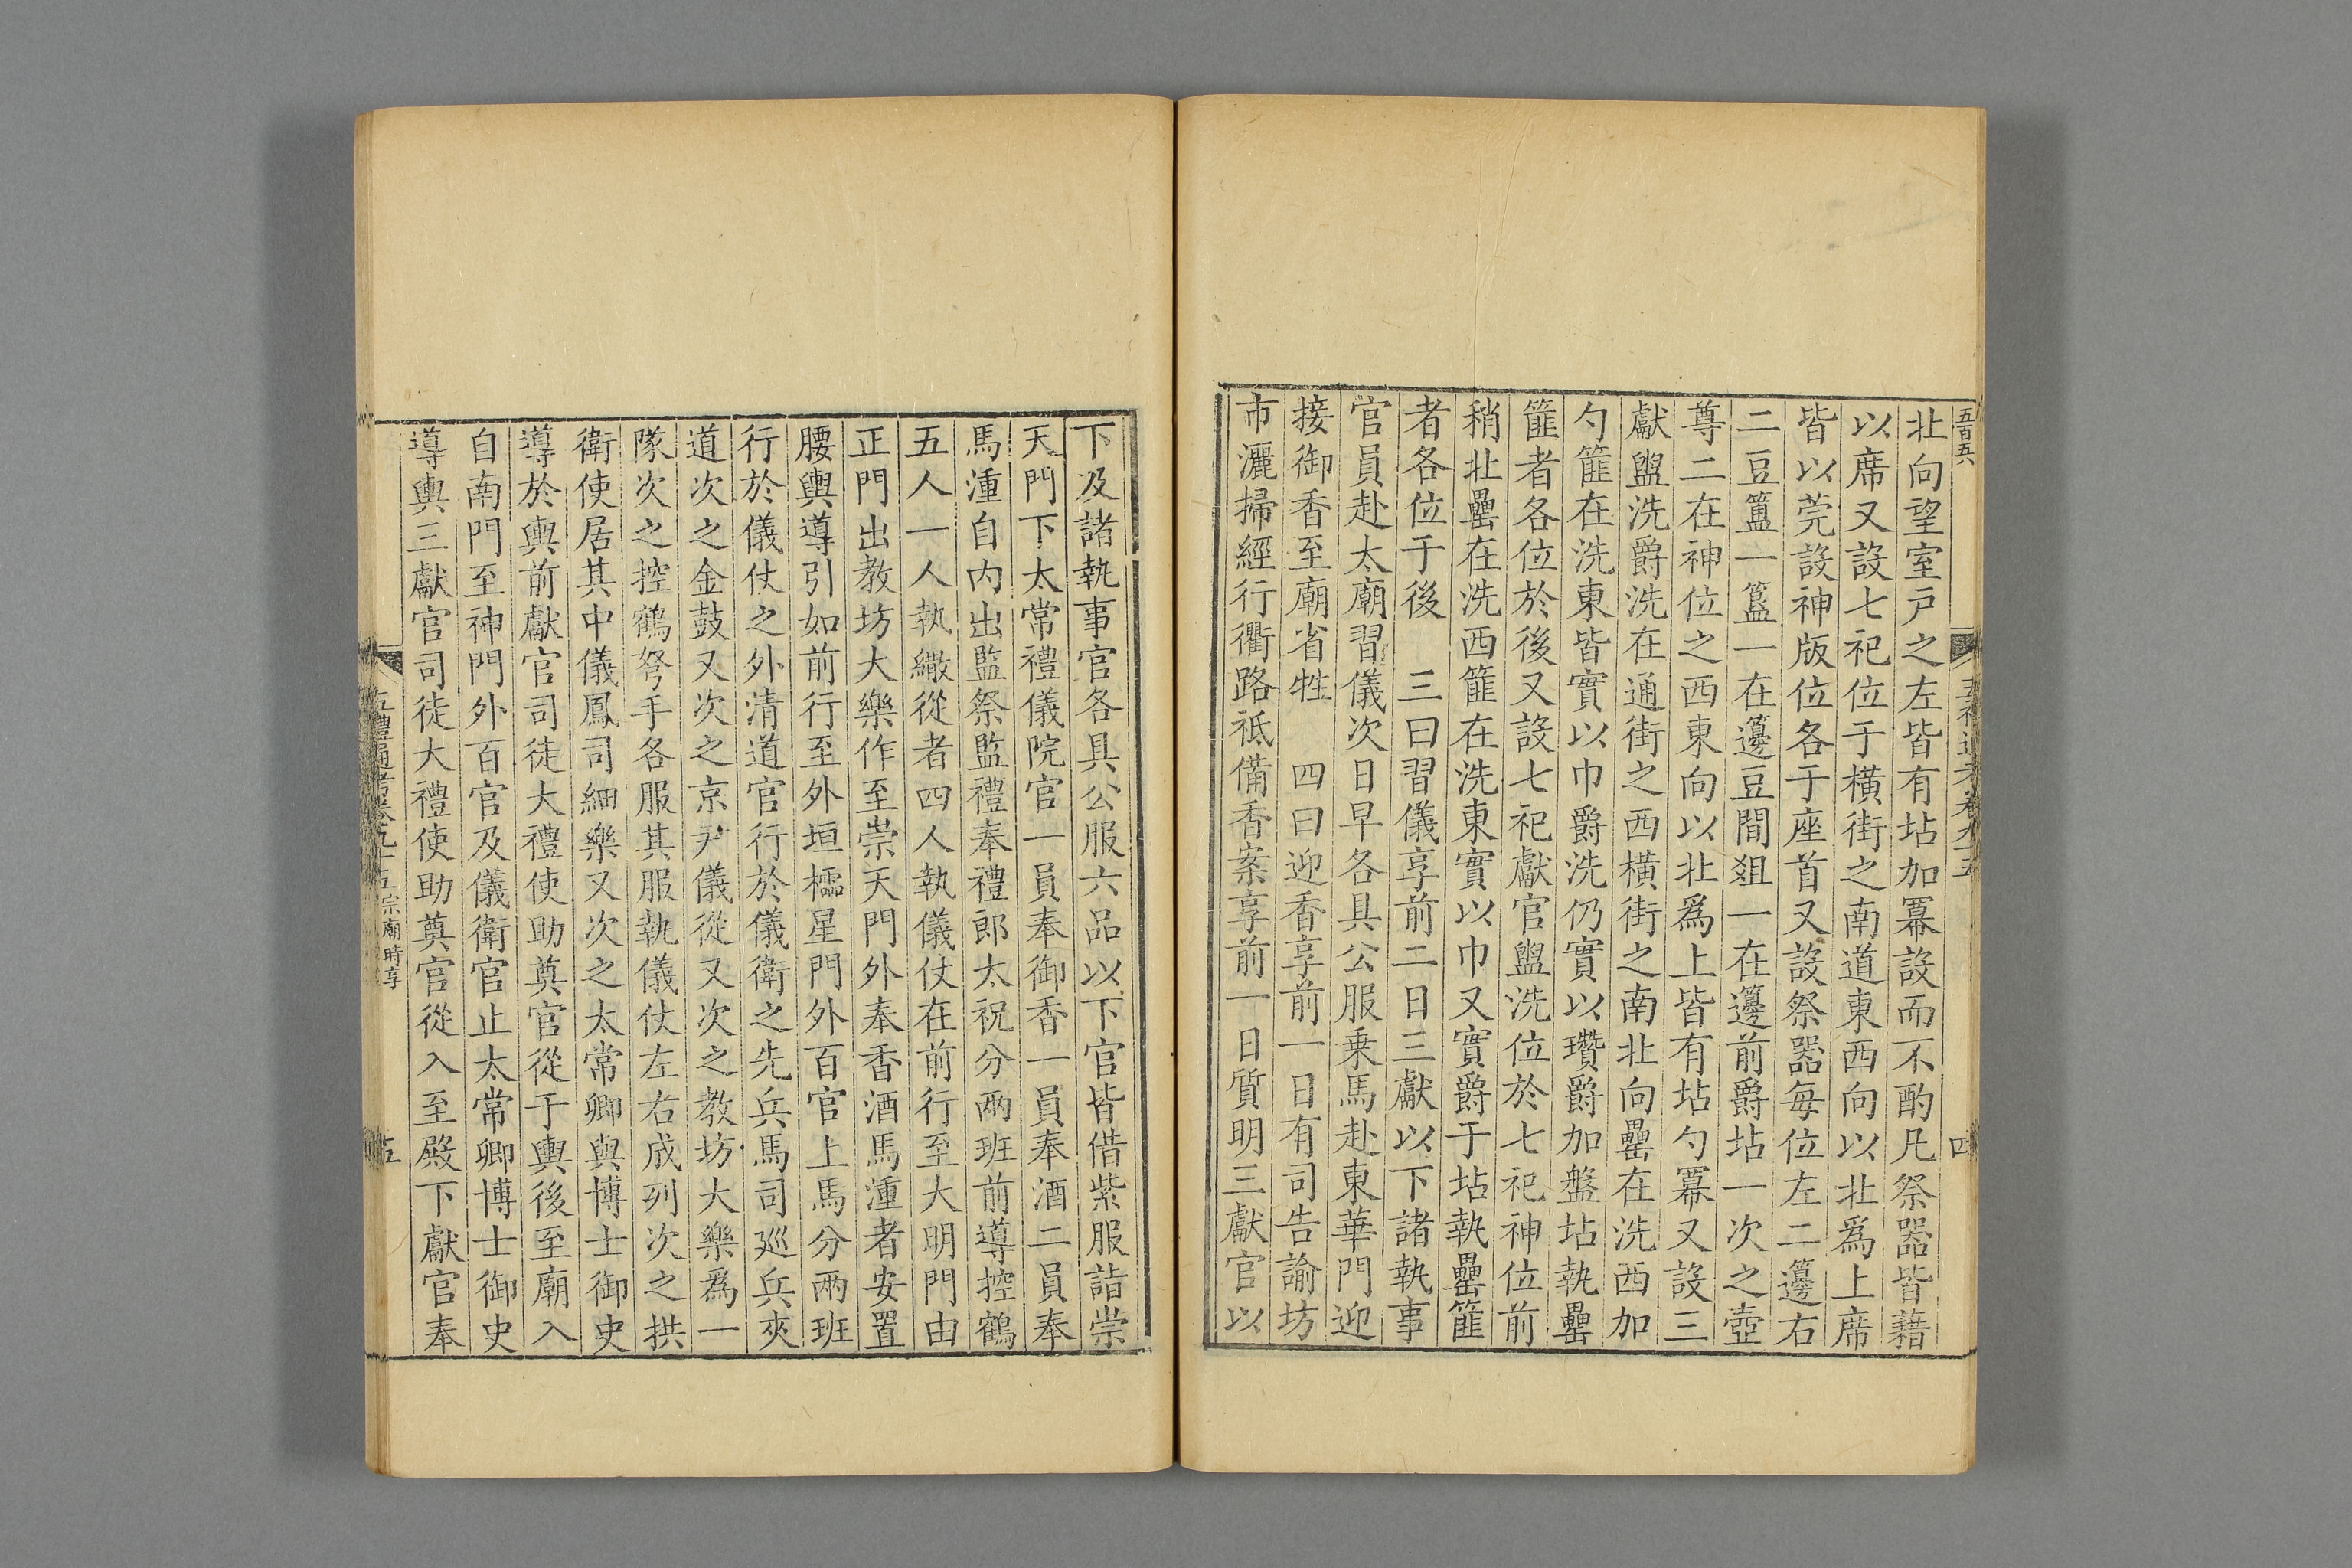 五百五六
五禮通考卷九十五
四
北向望室戸之左皆有坫加冪設而不酌凡祭器皆藉
以席又設七祀位于橫街之南道東西向以北爲上席
皆以莞設神版位各于座首又設祭器每位左二籩右
二豆簠一簋一在籩豆間爼一在籩前爵坫一次之壺
尊二在神位之西東向以北爲上皆有坫勺冪又設三
獻盥洗爵洗在通街之西橫街之南北向罍在洗西加
勺篚在洗東皆實以巾爵洗仍實以瓚爵加盤坫執罍
篚者各位於後又設七祀獻官盥洗位於七祀神位前
稍北罍在洗西篚在洗東實以巾又實爵于坫執罍篚
者各位于後　三曰習儀享前二日三獻以下諸執事
官員赴太廟習儀次日早各具公服乗馬赴東華門迎
接御香至廟省牲　四曰迎香享前一日有司告諭坊
市灑掃經行衢路祗備香案享前一日質明三獻官以
下及諸執事官各具公服六品以下官皆借紫服詣崇
天門下太常禮儀院官一員奉御香一員奉酒二員奉
馬湩自内出監祭監禮奉禮郎太祝分兩班前導控鶴
五人一人執繖從者四人執儀仗在前行至大明門由
正門出教坊大樂作至崇天門外奉香酒馬湩者安置
腰輿導引如前行至外垣櫺星門外百官上馬分兩班
行於儀仗之外清道官行於儀衛之先兵馬司廵兵夾
道次之金鼓又次之京尹儀從又次之教坊大樂爲一
隊次之控鶴弩手各服其服執儀仗左右成列次之拱
衛使居其中儀鳳司細樂又次之太常卿與博士御史
導於輿前獻官司徒大禮使助奠官從于輿後至廟入
自南門至神門外百官及儀衛官止太常卿博士御史
導輿三獻官司徒大禮使助奠官從入至殿下獻官奉
五禮通考卷九十五宗廟時享
五